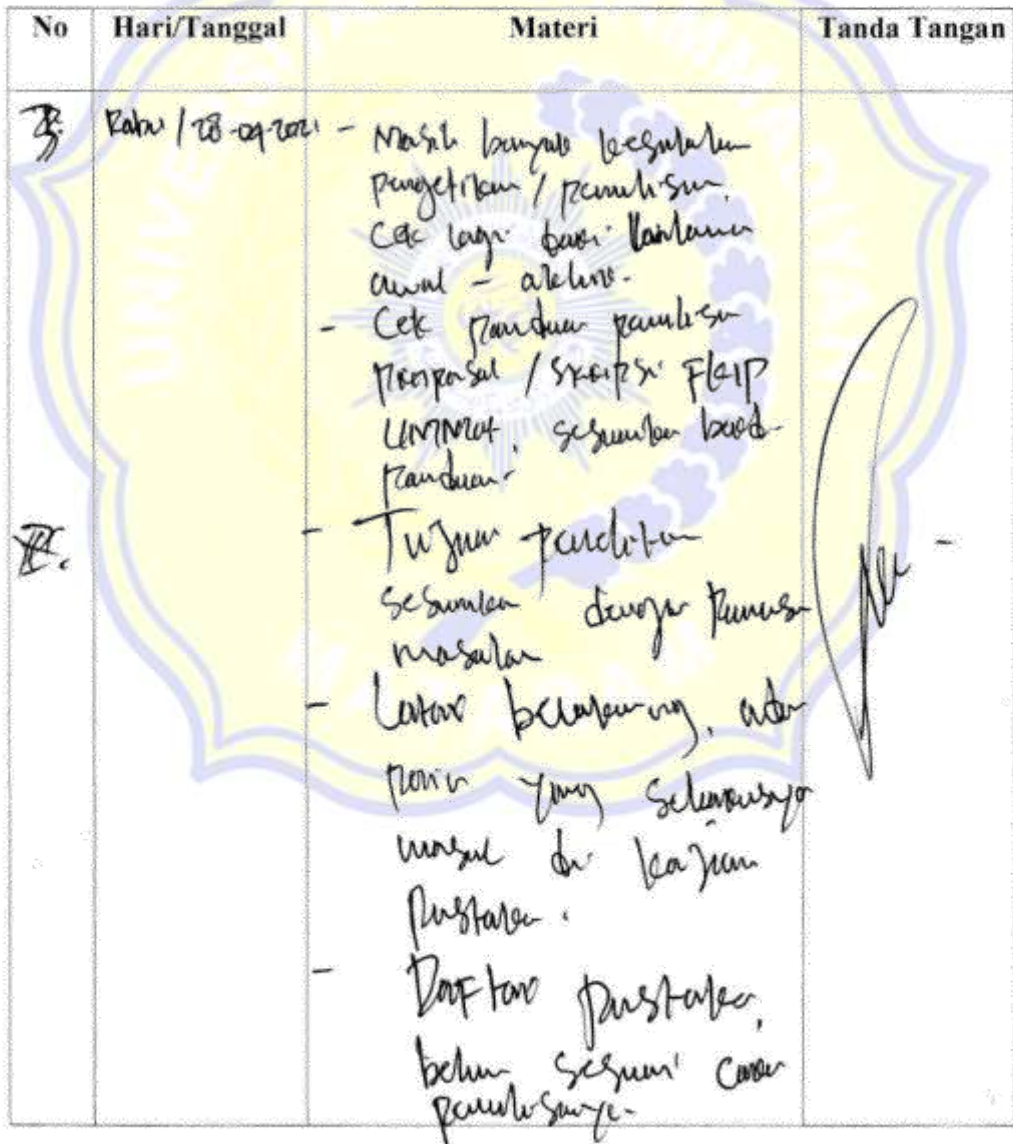 No Hari/Tanggal Materi Tanda Tangan
Rabu / 28-04-2021 - Masih banyak kesalahan
pengetikan / penulisan.
Cek lagi dari halaman
awal - akhir.
- Cek panduan penulisan
proposal / skripsi FKIP
UMMAT, sesuaikan
panduan.
- Tujuan penelitian
sesuaikan dengan rumusan
masalah
- Latar belakang, ada
poin yang seharusnya
masuk di kajian
pustaka.
- Daftar pustaka,
belum sesuai cara
penulisannya.
UNIVERSITAS MUHAMMADIYAH
MATARAM